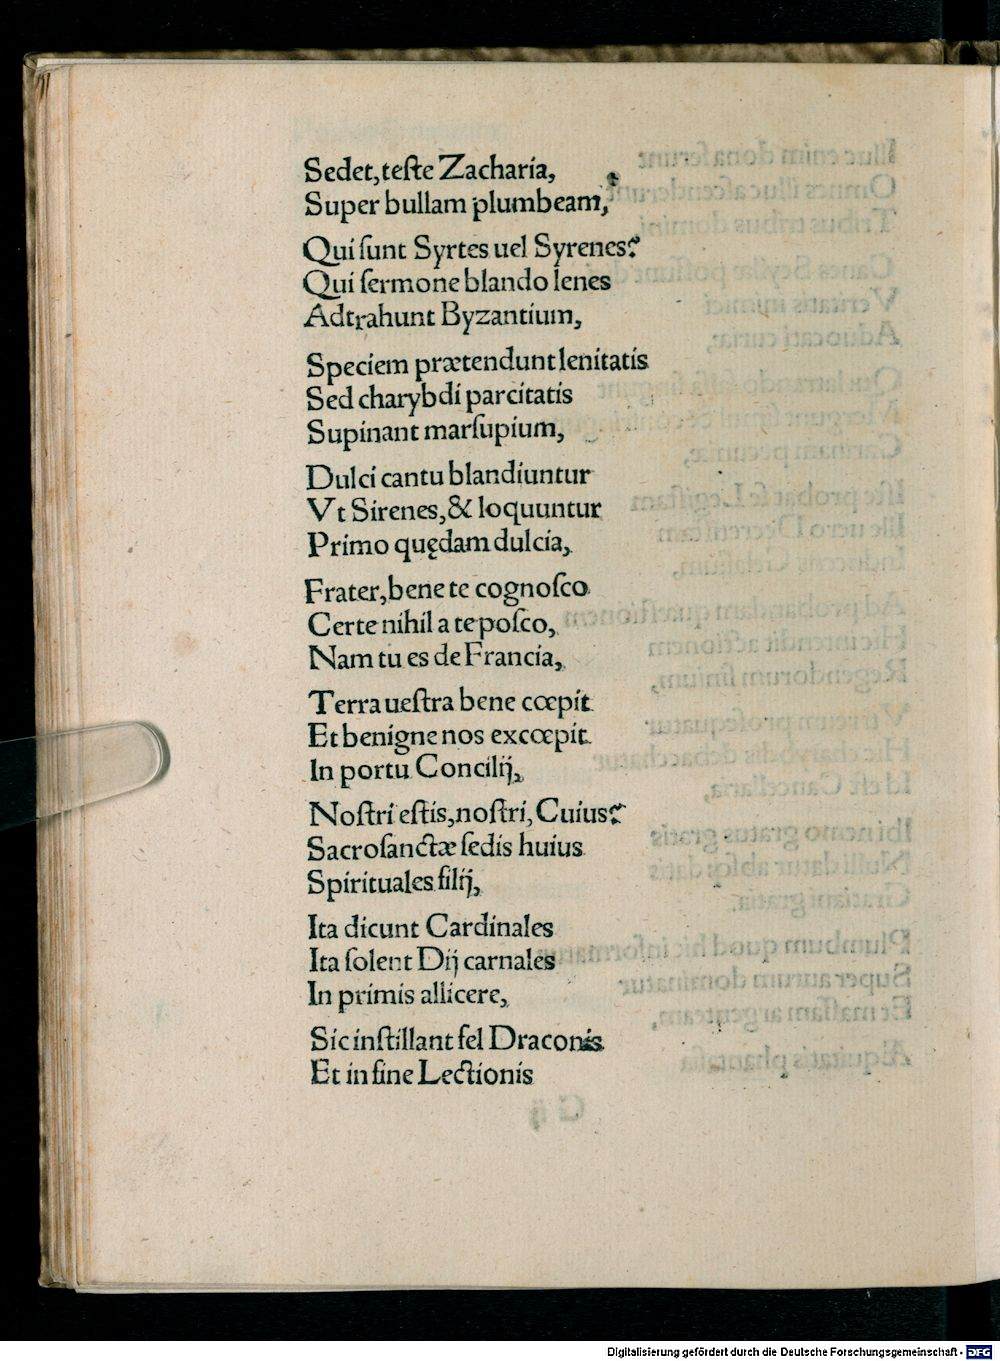 Sedet, teſte Zacharia,
Super bullam plumbeam,
Qui ſunt Syrtes uel Syrenes?
Qui ſermone blando lenes
Adtrahunt Byzantium,
Speciem prætendunt lenitatis
Sed charybdi parcitatis
Supinant marſupium,
Dulci cantu blandiuntur
Vt Sirenes, & loquuntur
Primo quędam dulcia,
Frater, bene te cognoſco
Certe nihil a te poſco,
Nam tu es de Francia,
Terra ueſtra bene cœpit
Et benigne nos excœpit
In portu Concilij,
Noſtri eſtis, noſtri, Cuius?
Sacroſanctæ ſedis huius
Spirituales filij,
Ita dicunt Cardinales
Ita ſolent Dij carnales
In primis allicere,
Sic inſtillant fel Draconis
Et in fine Lectionis
Digitalisierung gefördert durch die Deutsche Forschungsgemeinschaft - DFG